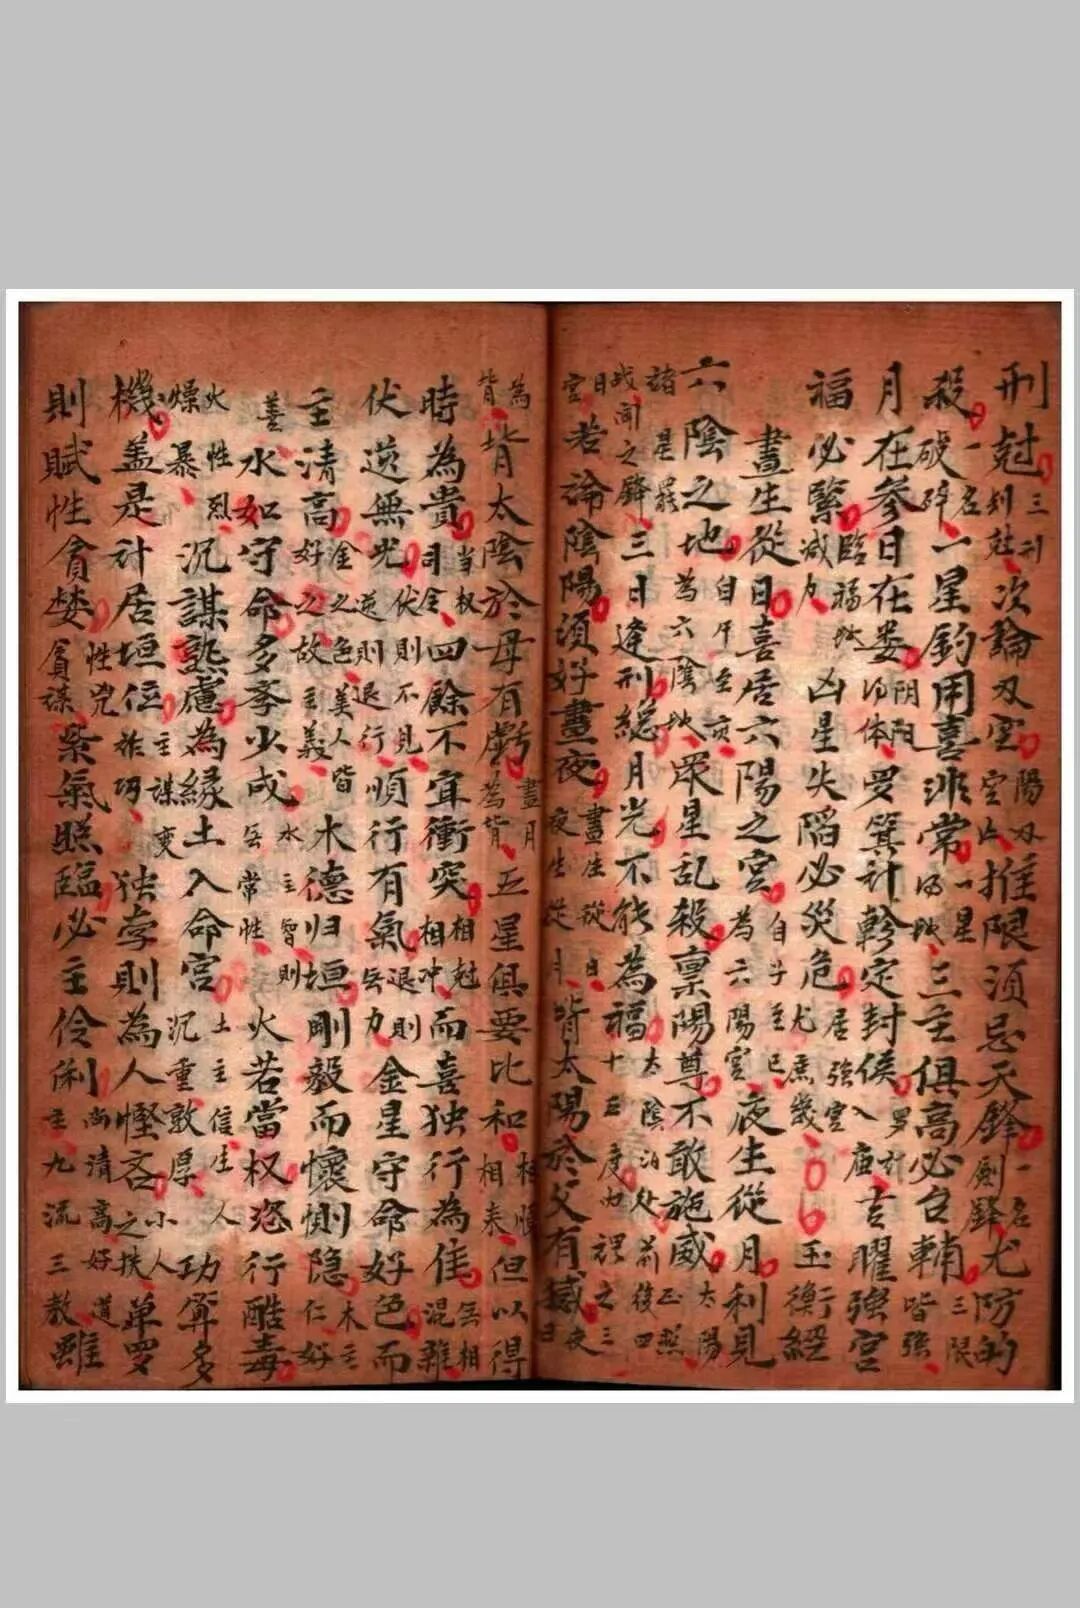 刑尅三刑刑尅次論刃空陽刃空亡推限須忌天鋒一名劍鋒尤防的
殺一名破碎一星鈞用喜非常一星得地三主俱高必台輔三限皆強
月在參日在娄阴阳得体受箕計軫定封侯罗計入庙吉曜強宮
福必緊臨福地减力凶星失陷必災危居強宮尤庶幾玉衡經
晝生從日喜居六陽之宮自子至巳為六陽宮夜生從月利見
六陰之地自午至亥為六陰地眾星乱殺禀陽尊不敢施威太陽正照前後四
諸星罷战闻之鋒三日逢刑總月光不能為福太陰泊处十五度內謂之三
日宮若論陰陽須好晝夜晝生從日夜生從月背太陽於父有慽夜日
為背背太陰於母有虧晝月為背五星俱要比和相順相奉但以得
時為貴当权司令四餘不宜衝突相尅相冲而喜独行為佳無相混雜
伏逆無光伏則不見逆則退行順行有氣退則無力金星守命好色而
主清高金之色美人皆好之故主義木德归垣剛毅而懷惻隐木主仁好
善水如守命多李少成水主智則無常性火若當权恣行酷毒
火性烈燥暴沉謀熟慮為緣土入命宮土主信生人沉重敦厚功算多
機盖是計居垣位主謀变祚巧独孛則為人慳吝小人之扶单罗
則賦性貪婪性兇貪謀紫氣照臨必主伶俐尚清高好道主九流三教雖